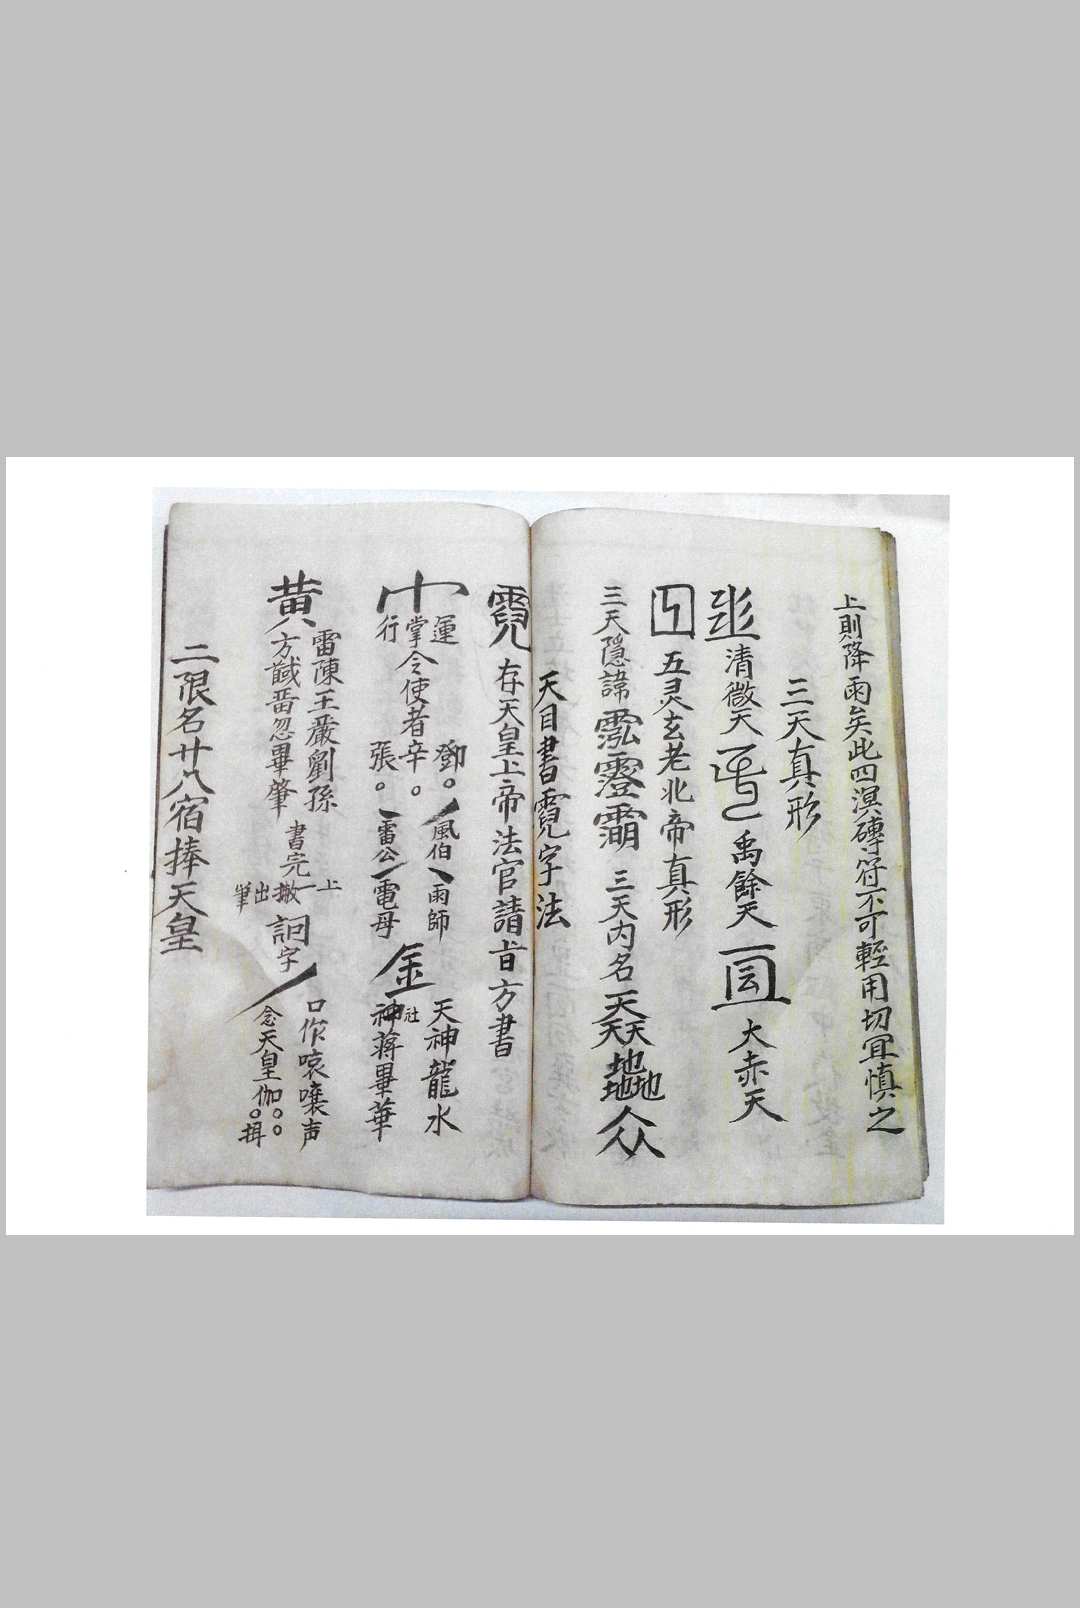 上則降雨矣此四溟磚符不可輕用切宜慎之
三天真形
清微天 禹餘天 大赤天
五灵玄老北帝真形
三天隱諱 三天内名 天天天地地地人人人
天目書霓字法
霓 存天皇上帝法官請旨方書
運
掌令使者辛。
行
鄧。
張。
風伯 雨師
雷公 電母
金
天神龍水
社
神蔣畢華
黄
雷陳王嚴劉孫
方 畨忽畢肇
書完
上一撇出筆
詗字
口作哀嚷声
念天皇伽。。揖
二限名廿八宿捧天皇